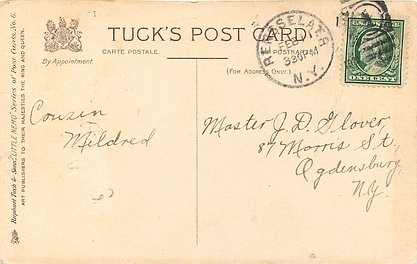 TUCK'S POST CARD
CARTE POSTALE.
POSTKARTE.
By Appointment.
(FOR ADDRESS ONLY.)
RENSSELAER
FEB
330PM
N.Y.
ONE CENT
Raphael Tuck & Sons' "LITTLE NEMO" Series of Post Cards, No. 6.
ART PUBLISHERS TO THEIR MAJESTIES THE KING AND QUEEN.
Cousin
Mildred
Master J.D. Glover,
87 Morris St,
Ogdensburg,
N.Y.